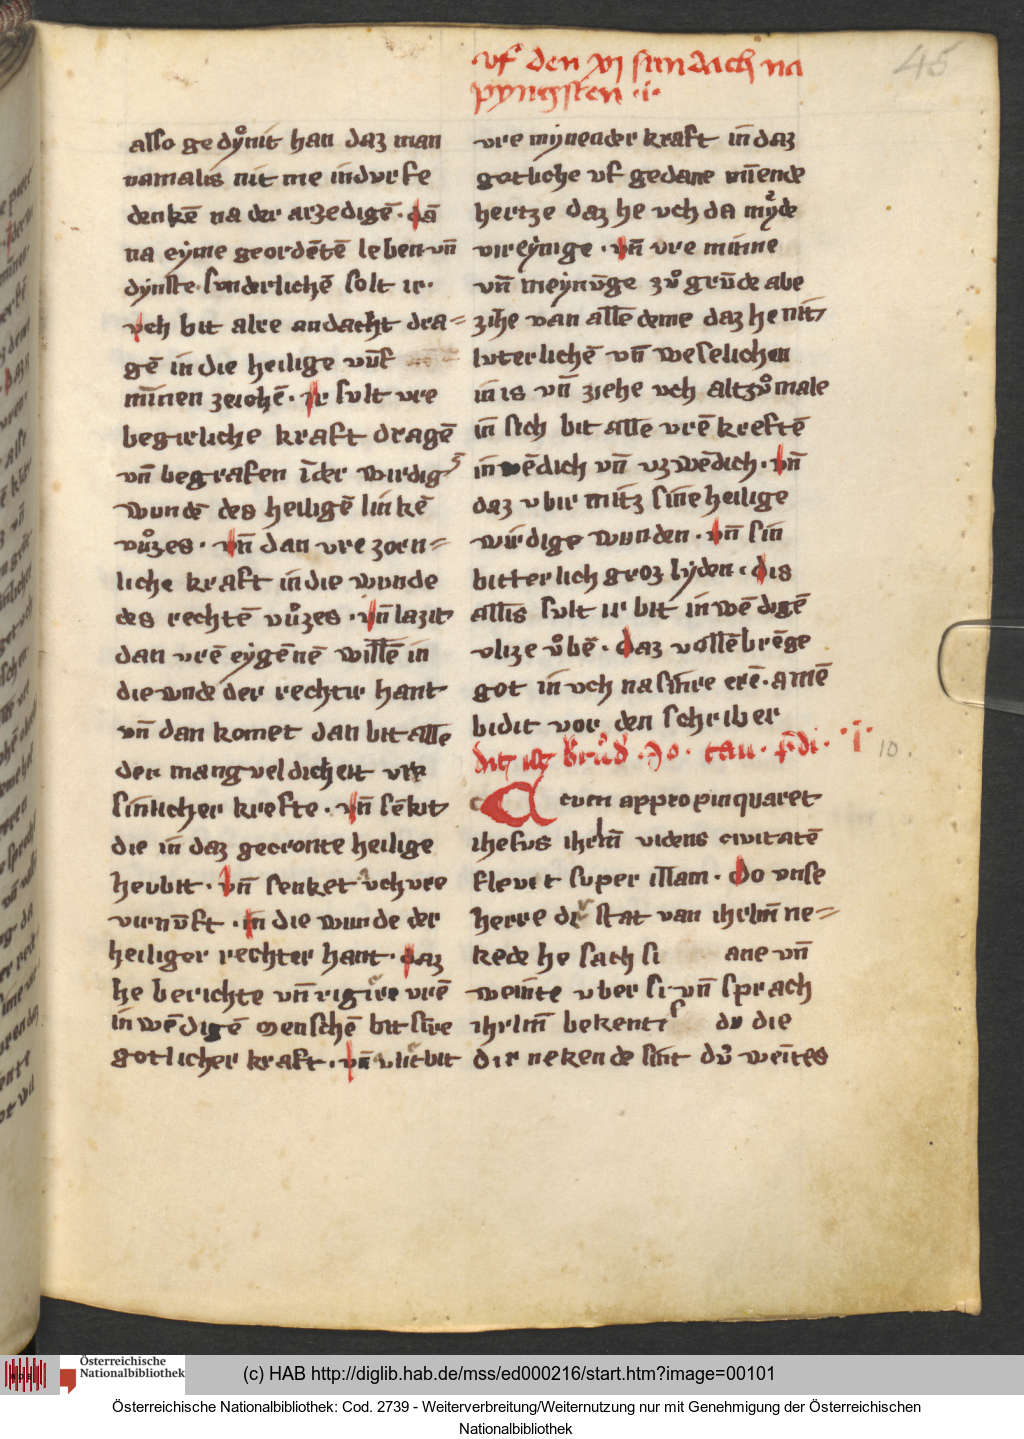 vf den xi sundach na
pyngsten .i.
45
also gedynit han daz man
namalis nit me in durfe
denkē na der arzedigē. dā
na eyme geordētē leben vn̄
dynste. sunderlichē solt ir.
vch bit alre andacht dra=
gē in die heilige vūf
mīnen zeichē. ir sult vre
begirliche kraft dragē
vn̄ begrafen ī der wirdig
wundē des heiligē linkē
vůzes. vn̄ dan vre zorn=
liche kraft in die wunde
des rechtē vůzes. vn̄ lazit
dan vrē eygēnē willē in
die wnde der rechtir hant
vn̄ dan komet dan bit alle
der mangueldicheit vre
sinlicher krefte. vn̄ sēkit
die in daz gecronte heilige
heubit. vn̄ senket vch vre
virnūft. in die wunde der
heiliger rechter hant. daz
he berichte vn̄ rigire vrē
inwēdigē menschē bit sīre
gotlicher kraft. vn̄ vlit bit
vre mynender kraft in daz
gotliche vf gedane mīnende
hertze daz he vch da myde
vireynige. vn̄ vre minne
vn̄ meynūge zů grūde abe
zihe van alle deme daz he nit
luterlichē vn̄ weselichen
in is vn̄ ziehe vch altzůmale
in sich bit alle vrē kreftē
inwēdich vn̄ vzwēdich. vn̄
daz vbir mitz sine heilige
wirdige wunden. vn̄ sin
bitterlich groz lyden. dis
allis sult ir bit inwēdigē
vlize vbē. daz vollēbrēge
got in vch na sinre erē. amē
bidit vor den schriber
dit ist brůd' Jo. tau. p̄di. .i.
10.
Cum appropinquaret
ihesus ihrl'm videns civitatē
flevit super illam. do vnse
herre die stat van ihrlm̄ ne=
kede he sach si ane vn̄
weinte vber si vn̄ sprach
ihrlm̄ bekentis du die
dir nekende sint dů weītes
Österreichische
Nationalbibliothek
(c) HAB http://diglib.hab.de/mss/ed000216/start.htm?image=00101
Österreichische Nationalbibliothek: Cod. 2739 - Weiterverbreitung/Weiternutzung nur mit Genehmigung der Österreichischen
Nationalbibliothek